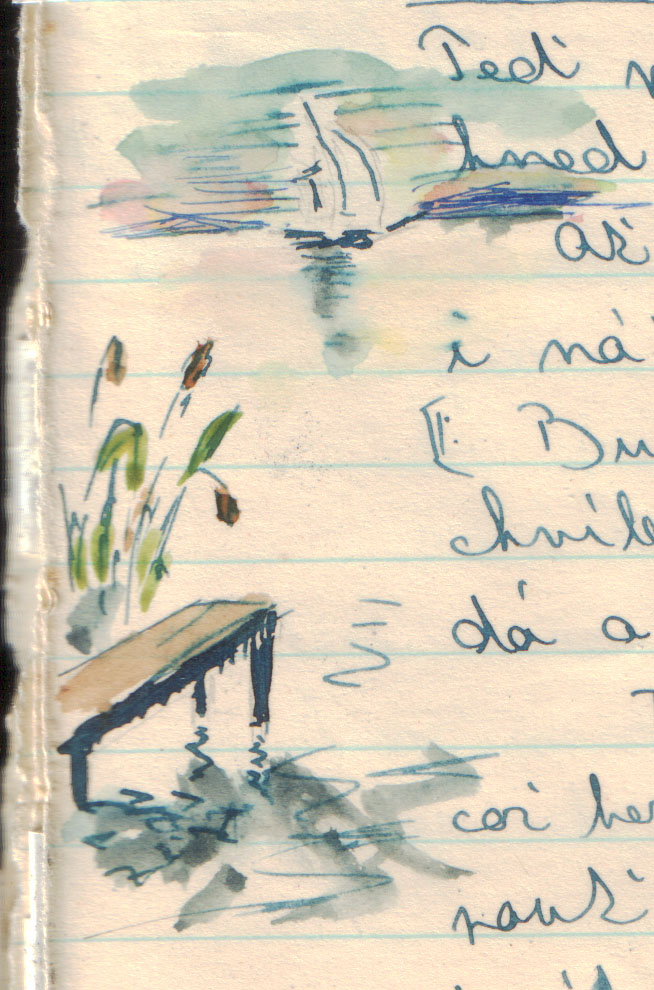 Teď
hned
až
i ná
Bu
chvíle
dá a
coi he